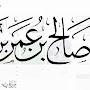 صالح بن عمر بن